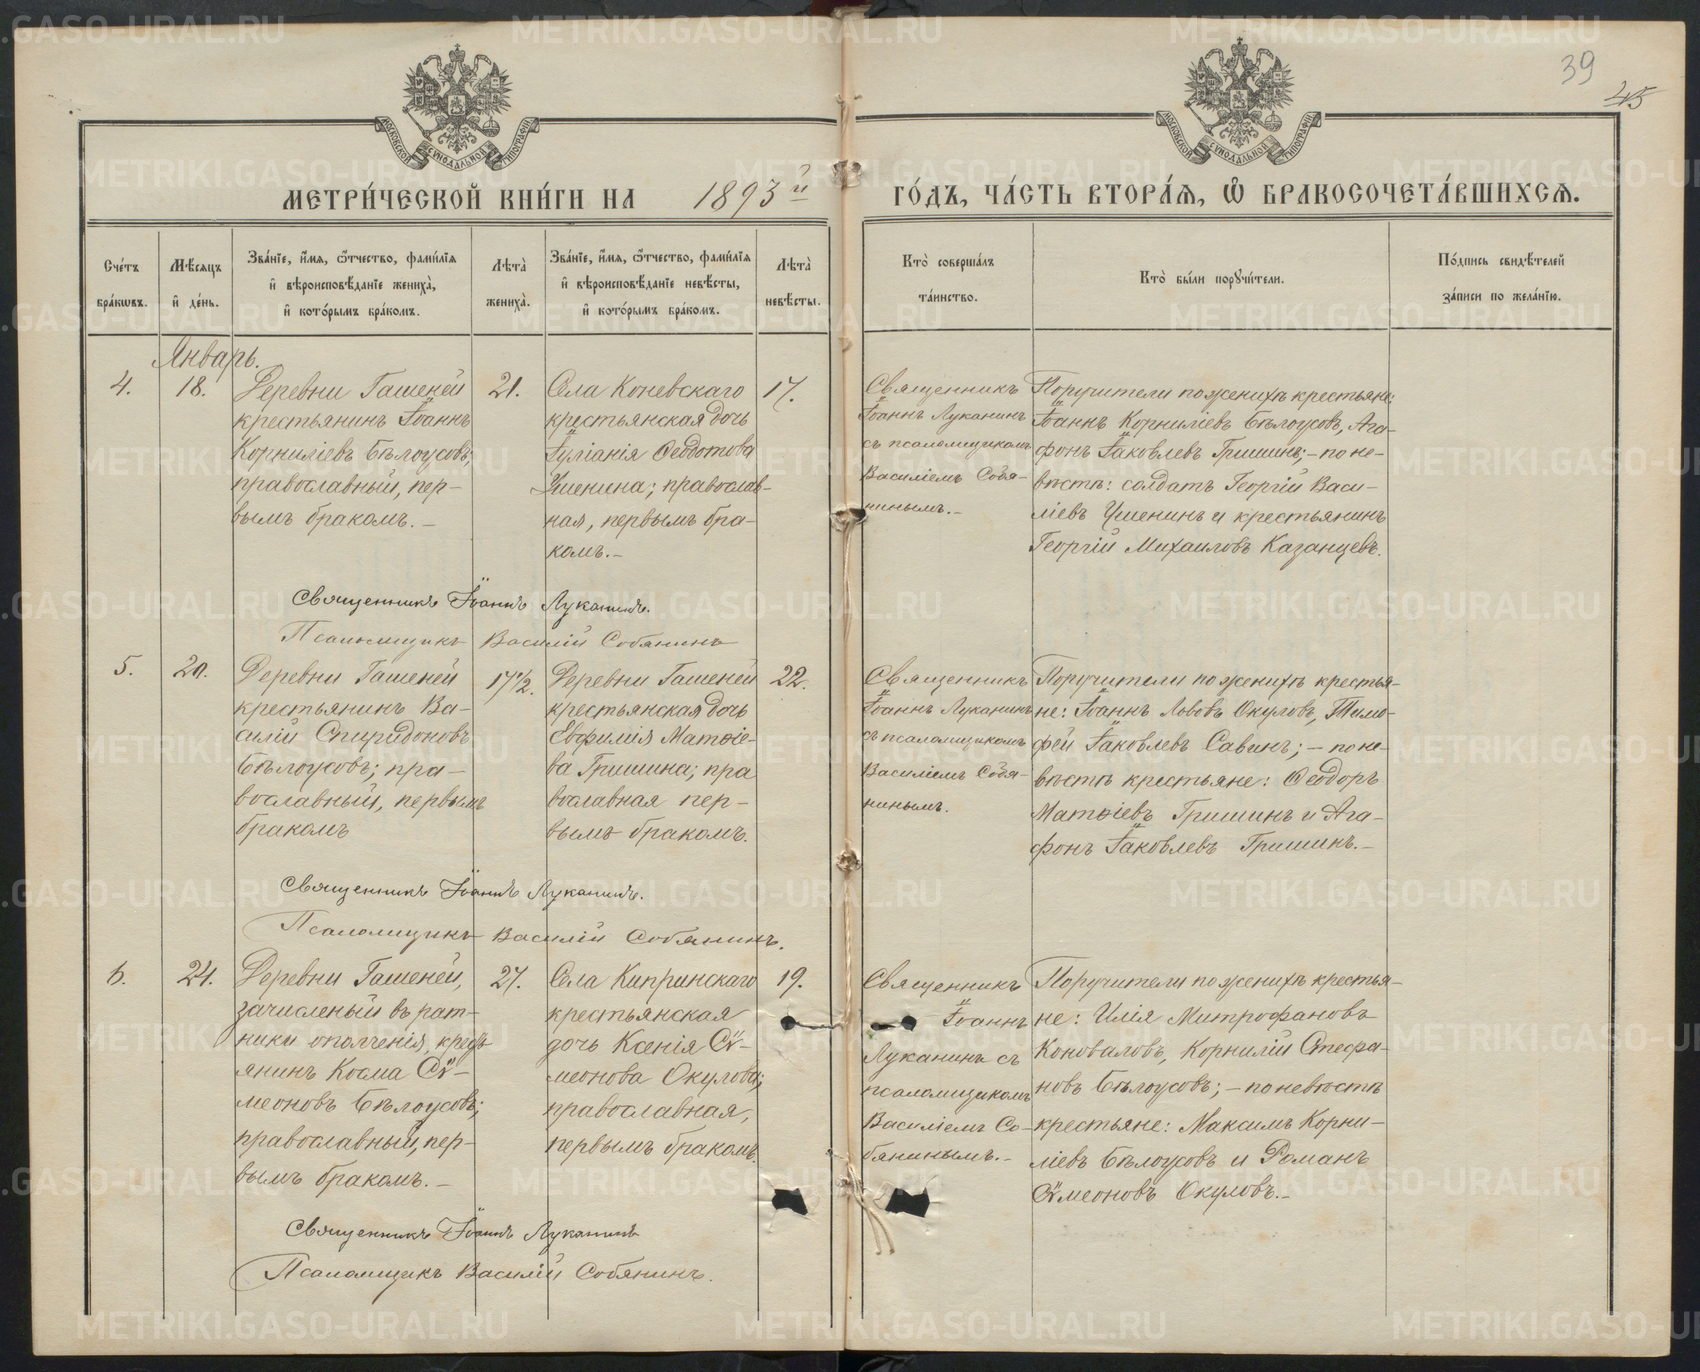 39
45
МЕТРИ́ЧЕСКОЙ КНИ́ГИ НА 1893й ГО́ДЪ, ЧА́СТЬ ВТОРА́Я, Ѿ БРАКОСОЧЕТА́ВШИХСѦ.
Сче́тъ бра́кѡвъ.
Мѣ́сяцъ и҆ де́нь.
Зва́нїе, и҆́мя, ѻ҆́тчество, фами́лїя и҆ вѣроисповѣ́данїе жениха̀, и҆ кото́рымъ бра́комъ.
Лѣта̀ жениха̀.
Зва́нїе, и҆́мя, ѻ҆́тчество, фами́лїя и҆ вѣроисповѣ́данїе невѣ́сты, и҆ кото́рымъ бра́комъ.
Лѣта̀ невѣ́сты.
Кто̀ соверша́лъ та́инство.
Кто̀ бы́ли порꙋчи́тели.
По́дпись свидѣ́телей за́писи по жела́нїю.
Январь.
4.
18.
Деревни Гашеней
крестьянинъ Іоаннъ
Корниліевъ Бѣлоусовъ,
православный, пер-
вымъ бракомъ.-
21.
Села Коневскаго
крестьянская дочь
Іуліанія Ѳеодотова
Ушенина; православ-
ная, первымъ бра-
комъ.-
17.
Священникъ
Іоаннъ Луканинъ
съ псаломщикомъ
Василіемъ Собя-
нинымъ.-
Поручители по женихѣ крестьяне:
Іоаннъ Корниліевъ Бѣлоусовъ, Ага-
фонъ Іаковлевъ Гришинъ;- по не-
вѣстѣ: солдатъ Георгій Васи-
ліевъ Ушенинъ и крестьянинъ
Георгій Михаиловъ Казанцевъ.
Священникъ Іоаннъ Луканинъ.
Псаломщикъ Василій Собянинъ
5.
20.
Деревни Гашеней
крестьянинъ Ва-
силій Спиридоновъ
Бѣлоусовъ; пра-
вославный, первымъ
бракомъ
17½.
Деревни Гашеней
крестьянская дочь
Евфимія Матѳіе-
ва Гришина; пра
вославная пер-
вымъ бракомъ.
22.
Священникъ
Іоаннъ Луканинъ
съ псаломщикомъ
Василіемъ Собя-
нинымъ.
Поручители по женихѣ крестья-
не: Іоаннъ Львовъ Окуловъ, Тимо-
фей Іаковлевъ Савинъ;- по не-
вѣстѣ крестьяне: Ѳеодоръ
Матѳіевъ Гришинъ и Ага-
фонъ Іаковлевъ Гришинъ.-
Священникъ Іоаннъ Луканинъ.
Псаломщикъ Василій Собянинъ.
6.
24.
Деревни Гашеней,
зачисленый въ рат-
ники ополченія, крест-
янинъ Косма Сѵ-
меоновъ Бѣлоусовъ;
православный, пер-
вымъ бракомъ.-
27.
Села Кипринскаго
крестьянская
дочь Ксенія Сѵ-
меонова Окулова;
православная,
первымъ бракомъ.
19.
Священникъ
Іоаннъ
Луканинъ съ
псаломщикомъ
Василіемъ Со-
бянинымъ.-
Поручители по женихѣ крестья-
не: Илія Митрофановъ
Коноваловъ, Корнилій Стефа-
новъ Бѣлоусовъ;- по невѣстѣ
крестьяне: Максимъ Корни-
ліевъ Бѣлоусовъ и Романъ
Сѵмеоновъ Окуловъ.-
Священникъ Іоаннъ Луканинъ
Псаломщикъ Василій Собянинъ.
METRIKI.GASO-URAL.RU